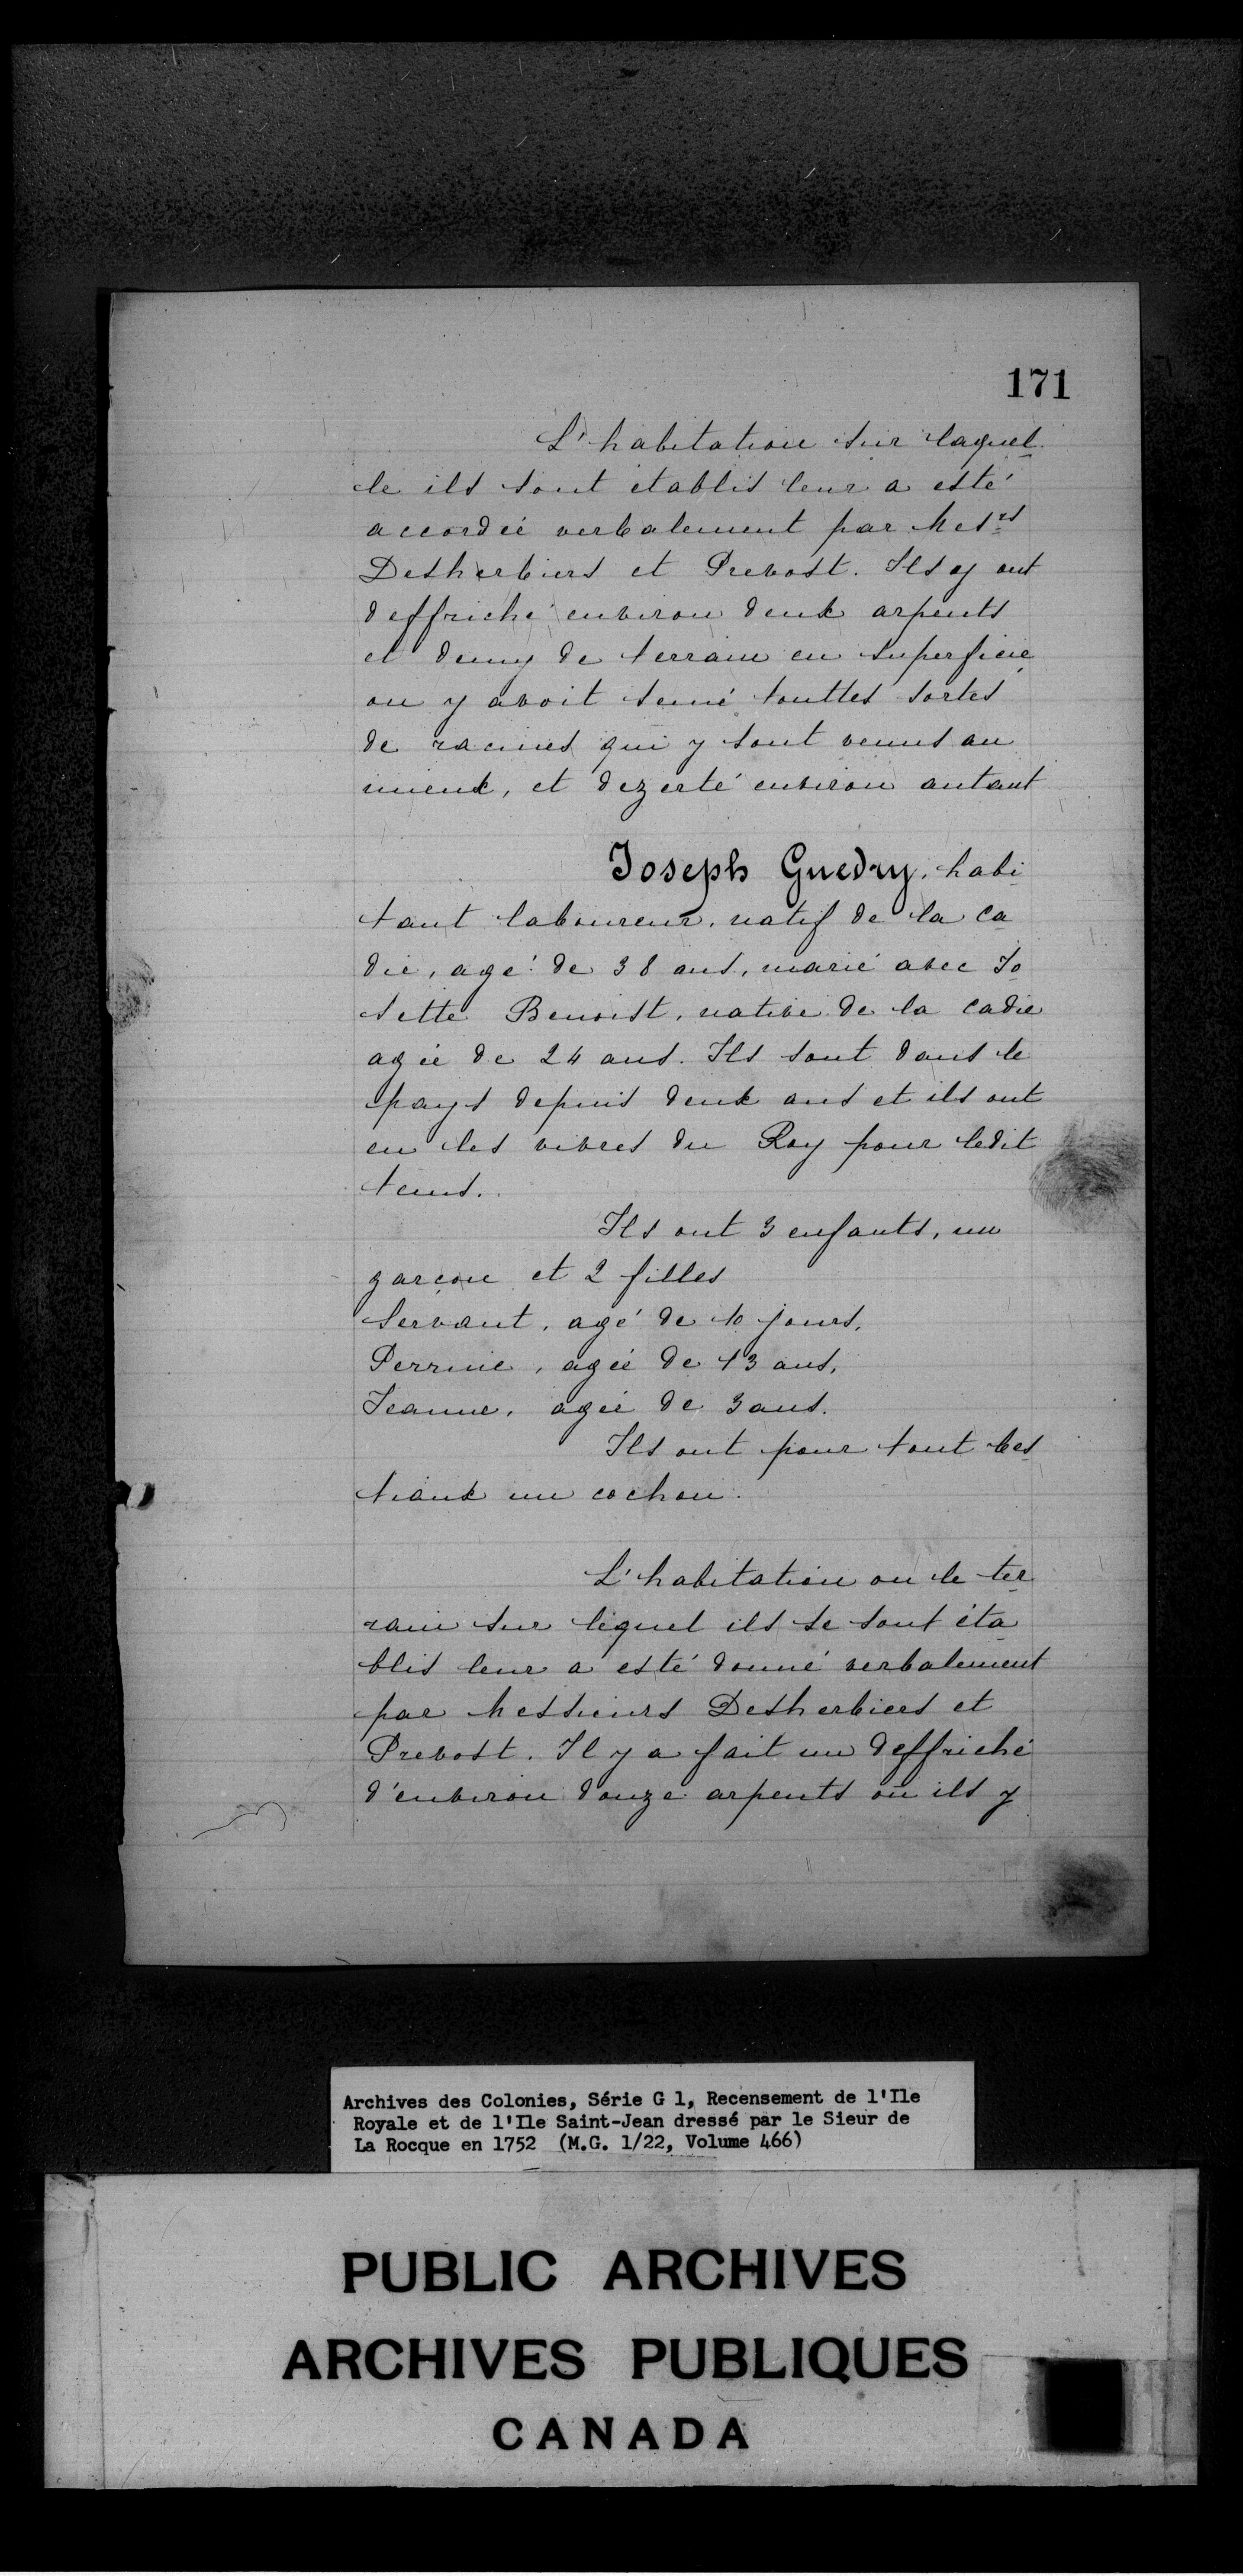 171
L'habitation sur laquel
le ils sont établis leur a esté
accordée verbalement par Mesrs
Desherbiers et Prevost. Ils y ont
deffriché environ deux arpents
et demy de terrain en superficie
ou y avoit semé touttes sortes
de racines qui y sont venus au
mieux, et dezerté environ autant
Joseph Guedry, habi
tant laboureur, natif de la Ca
die, agé de 38 ans, marié avec Jo
sette Benoist, native de la Cadie
agée de 24 ans. Ils sont dans le
pays depuis deux ans et ils ont
eu les vivres du Roy pour ledit
tems.
Ils ont 3 enfants, un
garçon et 2 filles
Servant, agé de 10 jours,
Perrine, agée de 13 ans,
Jeanne, agée de 3 ans.
Ils ont pour tout bes
tiaux un cochon.
L'habitation ou le ter
rain sur lequel ils se sont éta
blis leur a esté donné verbalement
par Messieurs Desherbiers et
Prevost. Il y a fait un deffriché
d'environ douze arpents où ils y
Archives des Colonies, Série G 1, Recensement de l'Ile
Royale et de l'Ile Saint-Jean dressé par le Sieur de
La Rocque en 1752 (M.G. 1/22, Volume 466)
PUBLIC ARCHIVES
ARCHIVES PUBLIQUES
CANADA